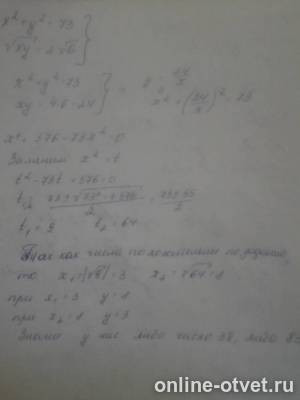 x² + y² = 73
√xy = 2√6
x² + y² = 73
xy = 4·6 = 24
y = 24/x
x² + (24/x)² = 73
x⁴ + 576 - 73x² = 0
Заменим x² = t
t² - 73t + 576 = 0
t = (73 ± √73² - 4·576)/2 = (73 ± 55)/2
t₁ = 9 t₂ = 64
Так как числа положительны по условию,
то x₁ = |√9| = 3 x₂ = √64 = 1
при x₁ = 3 y = 1
при x₂ = 1 y = 3
Значит у нас либо число 38, либо 83
online-otvet.ru